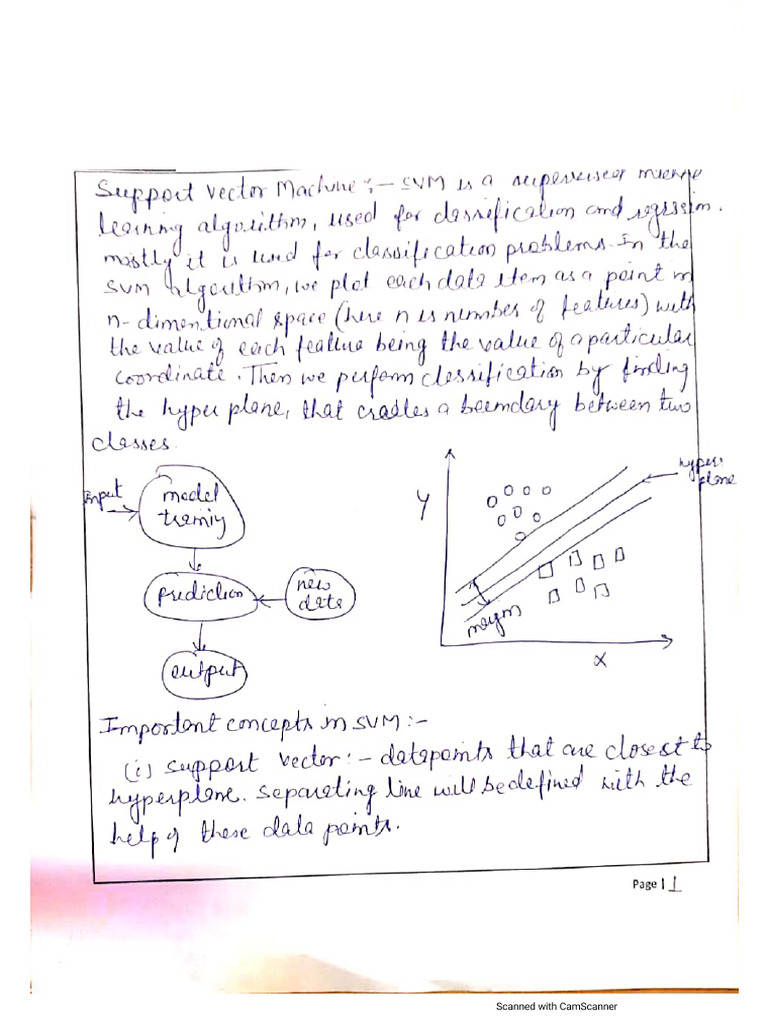 Support Vector Machine :- SVM is a supervised machine
learning algorithm, used for classification and regression.
mostly it is used for classification problems. In the
SVM algorithm, we plot each data item as a point in
n-dimentional space (here n is number of features) with
the value of each feature being the value of a particular
coordinate. Then we perform classification by finding
the hyper plane, that creates a boundary between two
classes.
input
model
training
prediction
new
data
output
Y
hyper
plane
margin
X
Important concepts in SVM :-
(i) support vector :- datapoints that are closest to
hyperplane. separating line will be defined with the
help of these data points.
Page | 1
Scanned with CamScanner